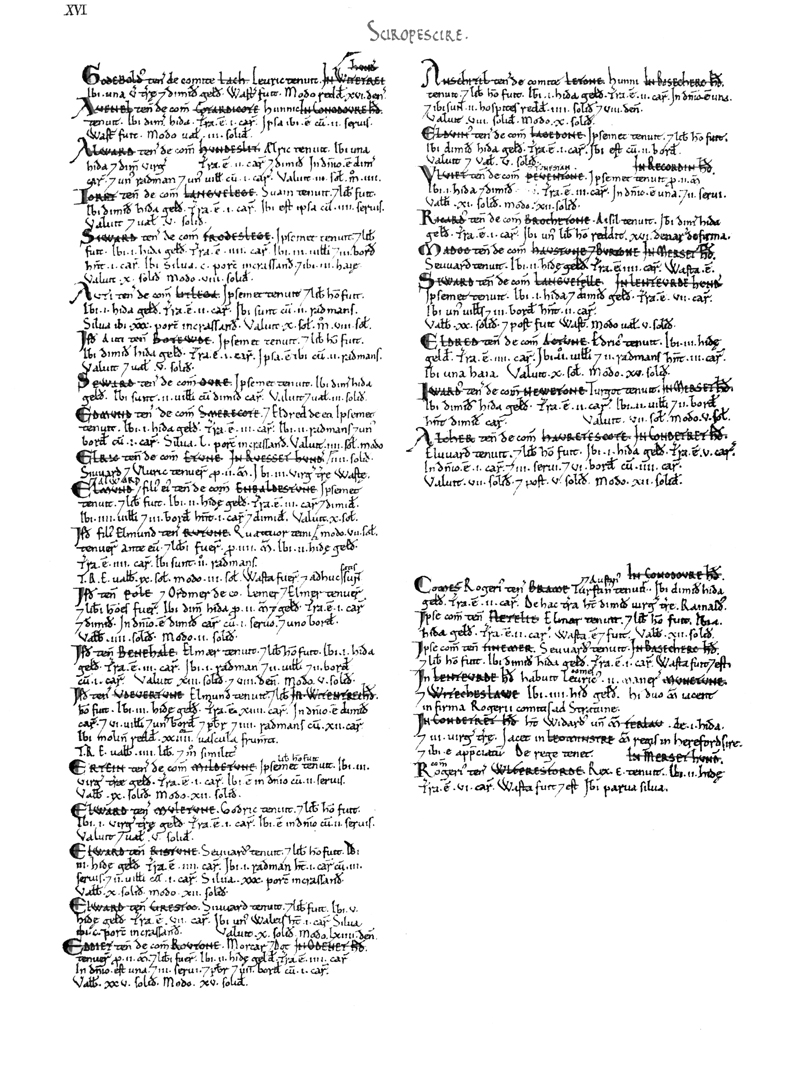 XVI
SCIROPESCIRE.
GODEBOLD' ten de comite Lach. Leuric tenuit. IN WITETREI
Ibi una v træ 7 dimid geld. Wast fuit. Modo redd xvi. den
AVENEL ten de com CHARDICOTE hunnic IN CONODOVRE HD.
tenuit. Ibi dim hida. Tra. e. i. car. Ipsa ibi. e cu. ii. seruis.
Wast fuit. Modo ual. iii. solid.
ALWARD ten de com HUNDESLIT. Alric tenuit. Ibi una
hida 7 dim virg Tra e. ii. car 7 dimid In dnio. e dim
car. 7 un radman 7 un uill cu. i. car. Valuit. iii. sol. m. iiii.
TORET ten de com LANGVELEGE. Suain tenuit. 7 lib fuit.
Ibi dimid hida geld. Tra. e. i. car. Ibi est ipsa cu. iiii. seruis.
Valuit 7 ual. v. solid.
SIWARD ten de com FRODESLEGE. Ipsemet tenuit. 7 lib
fuit. Ibi. i. hida geld. Tra. e. iiii. car. Ibi. iii. uilli 7 iii. bord
hnt. i. car. Ibi Silua. c. porc incrassand. 7 ibi. iii. haie
Valuit. x. solid modo. viii. solid.
AUTI ten de com LITLEGA. Ipsemet tenuit. 7 lib ho fuit.
Ibi. i. hida geld. Tra. e. ii. car. Ibi sunt cu. ii. radmans.
Silua ibi. xxx. porc incrassand. Valuit. x. sol. m. viii. sol.
Isd Auti ten BOTEWDE. Ipsemet tenuit. 7 lib ho fuit.
Ibi dimid hida geld. Tra. e. i. car. Ipsa. e ibi cu. ii. radmans.
Valuit 7 ual. v. solid.
SEWARD ten de com OVRE. Ipsemet tenuit. Ibi dim hida
geld. Ibi sunt. ii. uilli cu dimid car. Valuit 7 ual. iii. solid.
EDMUND ten de com SMERECOTE. 7 Eldred de eo Ipsemet
tenuit. Ibi. i. hida geld. Tra. e. iii. car. Ibi. ii. radmans 7 un
bord cu. i. car. Silua. L. porc incrassand. Valuit. iiii. sol. modo
ELRIC ten de com ETUNE. IN RUESSET HUND. iiii. solid.
Siuuard 7 Vluric tenuer. p. ii. m. Ibi. iii. virg træ Waste.
ALWARD
ELMUND 7 fili ei ten de com EMBALDESTUNE Ipsemet
tenuit. 7 lib fuit. Ibi. ii. hide geld. Tra. e. iii. car 7 dimid.
Ibi. iiii. uilli 7 iii. bord hnt. i. car 7 dimid. Valuit. x. sol.
tenuer ante eu. 7 libi fuer. p. iiii. m. Ibi. ii. hide geld.
Tra. e. iiii. car. Ibi sunt. ii. radmans.
T.R.E. ualb. ix. sol. modo. iii. sol. Wasta fuer 7 adhuc sunt
Isd ten POLE 7 Ordmer de co. Leuer 7 Elmer tenuer
7 libi hoes fuer. Ibi dim hida. p. ii. m. 7 geld. Tra. e. i. car
7 dimid. In dnio. e dimid car cu. i. seruo 7 uno bord.
Valb. iiii. solid. Modo. ii. solid.
Isd ten BENEHALE. Elmær tenuit. 7 lib ho fuit. Ibi. i. hida
geld. Tra. e. iii. car. Ibi. i. radman 7 ii. uilli 7 ii. bord
cu. ii. car. Valuit xiii. solid 7 viii. den. Modo. v. solid.
Isd ten UDEVERTUNE Elmund tenuit 7 lib IN WITENTREI HD
ho fuit. Ibi. iii. hide geld. Tra. e. xiiii. car. In dnio. e dimid
car. 7 vi. uilli 7 un bord 7 pbr 7 iiii. radmans cu. xii. car
T.R.E. ualb. iiii. lib. 7 m similit
lib ho fuit
ERTEIN ten de com MILDETUNE Ipsemet tenuit. Ibi. iii.
virg træ geld. Tra. e. i. car. Ibi e in dnio cu. ii. seruis.
Valb. ix. solid. Modo. xii. solid.
ELWARD ten MULETUNE. Godric tenuit. 7 lib ho fuit.
Ibi. i. virg træ geld. Tra. e. i. car. Ibi e in dnio cu. ii. seruis.
Valuit 7 ual. v solid.
ELWARD ten RISTUNE. Seuuard tenuit. 7 lib ho fuit. Ibi
iii. hide geld. Tra. e. iiii. car. Ibi. i. radman ht. i. car cu. iii.
seruis. 7 ii. uilli cu. i. car. Silua. xxx. porc incrassand.
Valb. x. solid. modo. xii. solid.
ELWARD ten GRESTOC. Siuuard tenuit. 7 lib fuit. Ibi. v.
hide geld. Tra. e. vii. car. Ibi un Waleis ht. i. car Silua
c. porc incrassand. Valuit. x. solid. Modo. lxiiii. den.
EDDIET ten de com ROUTONE. Morcar 7 Dot IN ODENET HD.
tenuer. p. ii. m. 7 libi fuer. Ibi. ii. hide geld. Tra. e. iii. car
In dnio. est una 7 iii. serui. 7 pbr 7 iiii. bord cu. i. car.
Valb. xxv. solid. Modo. xv. solid.
ANSCHITIL ten de comite LETONE. hunni IN BASECHERC HD.
tenuit. 7 lib ho fuit. Ibi. i. hida geld. Tra. e. ii. car. In dnio e una.
7 ibi sunt. ii. hospites redd. iiii. solid 7 viii. den.
Valuit. viii. solid. modo. x. solid.
ELDVIN ten de com LACEDONE. Ipsemet tenuit. 7 lib ho fuit.
Ibi dimid hida geld. Tra. e. i. car. Ibi est cu. ii. bord.
Valuit 7 ual. v. solid. IN RECORDIN HD.
VLVIET ten de com PEVENTONE. Ipsemet tenuit. p. ii. m
Ibi. i. hida 7 dimid Tra. e. iii. car. In dnio. e una. 7 ii. serui.
Valb. xi. solid. modo. xii. solid.
RICARD ten de com BROCHETONE. Aisil tenuit. Ibi dim hida
geld. Tra. e. i. car. Ibi un lib ho reddit. xvi. denar de firma.
MADOC ten de com HAUSTUNE 7 BURTONE IN MERSET HD.
Seuuard tenuit. Ibi. ii. hide geld. Tra. e. iiii. car. Wasta. e.
SEWARD ten de com LANGVEFELLE. IN LENTEVRDE HUND
Ipsemet tenuit. Ibi. i. hida 7 dimid geld. Tra. e. vii. car.
Ibi un uills 7 ii. bord hnt. ii. car.
Valb. xx. solid. 7 post fuit Wast. Modo ual. v. solid.
ELDRED ten de com ACTUNE. Edric tenuit. Ibi. iii. hide
geld. Tra. e. iiii. car. Ibi. ii. uilli 7 ii. radmans hnt. iii. car.
Ibi una haia. Valuit. xx. solid. Modo. xv. solid.
IWARD ten de com NEWETONE Turgot tenuit. IN MERSET HD.
Ibi dimid hida geld. Tra. e. ii. car. Ibi. ii. uilli 7 ii. bord
hnt dimid car. Valuit. vii. sol. Modo. v. sol.
ALCHER ten de com HAVRETESCOTE. IN CONDETRET HD.
Eluuard tenuit. 7 lib ho fuit. Ibi. i. hida geld. Tra. e. v. car.
In dnio e. i. car. 7 iii. serui. 7 vi. bord cu. iiii. car.
Valuit. vii. solid. 7 post. v. solid. Modo. xii. solid.
IN CONODOVRE HD.
COMES Roger ten BRAME Turstan tenuit. Ibi dimid hida
geld. Tra. e. ii. car. De hac tra ht dimid virg træ. Rainald.
Ipse com ten Elmer tenuit. 7 lib ho fuit. Ibi. i.
hida geld. Tra. e. ii. car. Wasta. e 7 fuit. Valb. xii. solid.
Ipse com ten TINEMER. Seuuard tenuit. IN BASECHERC HD
7 lib ho fuit. Ibi dimid hida geld. Tra. e. i. car. Wasta fuit 7 est
IN LENTEVRDE HD habuit Leuric. ii. maner MUNETUNE
7 WITECHESLAWE Ibi. iiii. hid geld. hi duo m iacent
in firma Rogerii comitis ad Stratune.
IN CONDETRET HD. ht Widard un m FERLAU. de. i. hida.
7 iii. virg træ. Iacet in LEOMINSTRE m regis in herefordsire.
7 ibi. e appciatu. De rege tenet. IN MERSET HUND.
com
Roger ten WITERESFORDE. Rex. E. tenuit. Ibi. ii. hide
Tra. e. vi. car. Wasta fuit 7 est. Ibi parua silua.